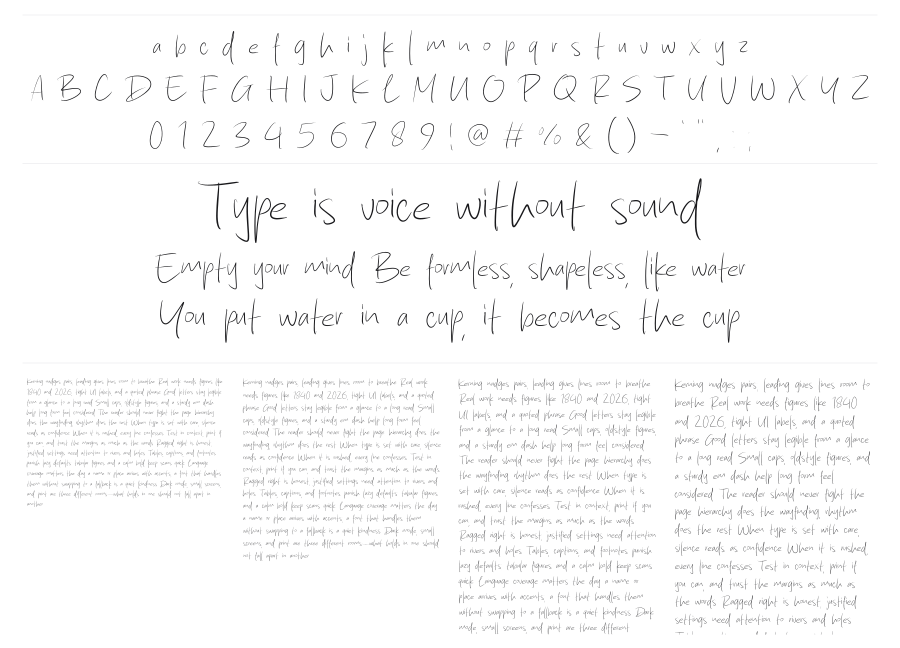 a b c d e f g h i j k l m n o p q r s t u v w x y z
A B C D E F G H I J K L M N O P Q R S T U V W X Y Z
0 1 2 3 4 5 6 7 8 9 ! @ # % & ( ) – ' " , . : ;
Type is voice without sound
Empty your mind Be formless, shapeless, like water
You put water in a cup, it becomes the cup
Kerning nudges pairs, leading gives lines room to breathe Red work needs figures like
1840 and 2026, tight UI labels, and a quoted phrase Good letters stay legible
from a glance to a long read Small caps, oldstyle figures, and a sturdy em dash
help long form feel considered The reader should never fight the page hierarchy
does the wayfinding rhythm does the rest When type is set with care, silence
reads as confidence When it is rushed, every line confesses Test in context, print if
you can and trust the margins as much as the words Ragged right is honest,
justified settings need attention to rivers and holes Tables, captions, and footnotes
punish lazy defaults tabular figures and a calm bold keep scans quick Language
coverage matters the day a name or place arrives with accents, a font that handles
them without swapping to a fallback is a quiet kindness Dark mode, small screens,
and print are three different rooms—what holds in one should not fall apart in
another
Kerning nudges pairs, leading gives lines room to breathe Red work
needs figures like 1840 and 2026, tight UI labels, and a quoted
phrase Good letters stay legible from a glance to a long read Small
caps, oldstyle figures, and a sturdy em dash help long form feel
considered The reader should never fight the page hierarchy does the
wayfinding rhythm does the rest When type is set with care, silence
reads as confidence When it is rushed, every line confesses Test in
context, print if you can and trust the margins as much as the words
Ragged right is honest, justified settings need attention to rivers and
holes Tables, captions, and footnotes punish lazy defaults tabular figures
and a calm bold keep scans quick Language coverage matters the day
a name or place arrives with accents, a font that handles them
without swapping to a fallback is a quiet kindness Dark mode, small
screens, and print are three different rooms—what holds in one should
not fall apart in another
Kerning nudges pairs, leading gives lines room to breathe
Red work needs figures like 1840 and 2026, tight
UI labels, and a quoted phrase Good letters stay legible
from a glance to a long read Small caps, oldstyle figures,
and a sturdy em dash help long form feel considered
The reader should never fight the page hierarchy does
the wayfinding rhythm does the rest When type is
set with care, silence reads as confidence When it is
rushed, every line confesses Test in context, print if you
can and trust the margins as much as the words
Ragged right is honest, justified settings need attention
to rivers and holes Tables, captions, and footnotes punish
lazy defaults tabular figures and a calm bold keep scans
quick Language coverage matters the day a name or
place arrives with accents, a font that handles them
without swapping to a fallback is a quiet kindness Dark
mode, small screens, and print are three different
Kerning nudges pairs, leading gives lines room to
breathe Red work needs figures like 1840
and 2026, tight UI labels, and a quoted
phrase Good letters stay legible from a glance
to a long read Small caps, oldstyle figures, and
a sturdy em dash help long form feel
considered The reader should never fight the
page hierarchy does the wayfinding rhythm
does the rest When type is set with care,
silence reads as confidence When it is rushed,
every line confesses Test in context, print if
you can and trust the margins as much as
the words Ragged right is honest, justified
settings need attention to rivers and holes